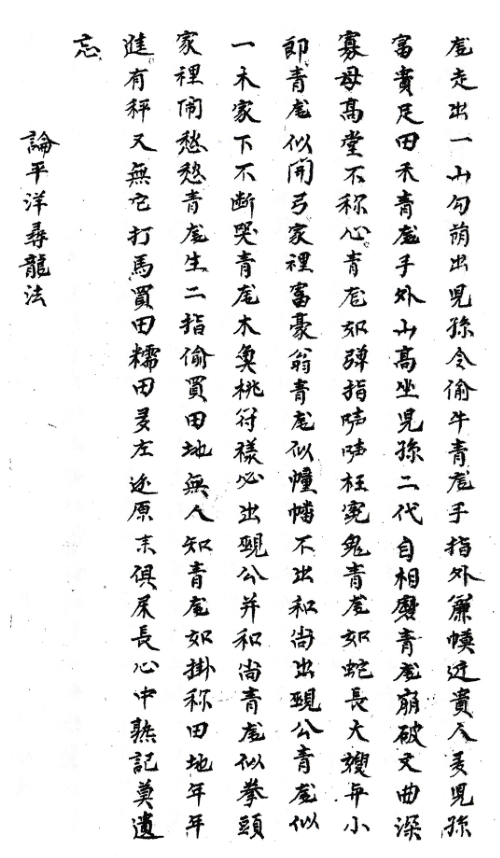 虎走出一山勾萠出児孫令偷牛青龙手指外簾幙近貴人多児孫
富貴足田禾青龙手外山高坐児孫二代自相磨青龙崩破文曲深
寡母高堂不称心青龙如弹指声声枉寃鬼青龙如蛇長大嫂再小
即青龙似開弓家裡富豪翁青龙似幢幡不出和尚出覡公青龙似
一木家下不断哭青龙木魚桃符樣必出覡公并和尚青龙似拳頭
家裡闹愁愁青龙生二指偷買田地無人知青龙如掛称田地年年
進有秤又無它打馬買田糯田多左边原来俱屎長心中熟記莫遺
忘
論平洋尋龍法